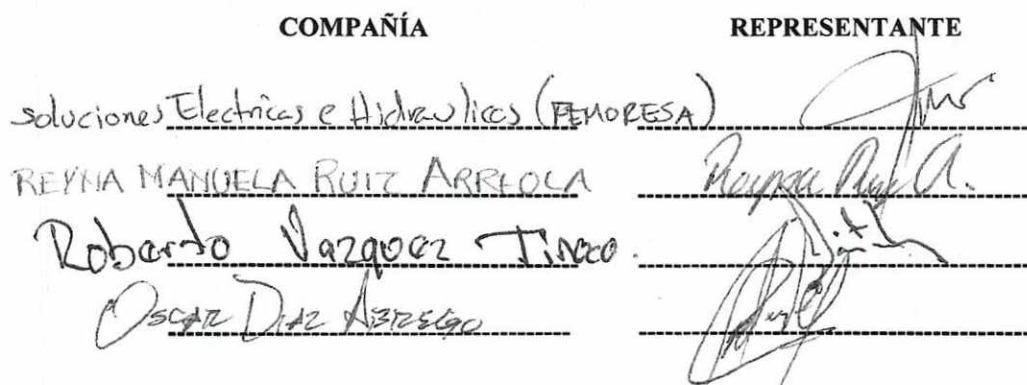 COMPAÑÍA REPRESENTANTE
Soluciones Electricas e Hidraulicas (FEMORESA)
REYNA MANUELA RUIZ ARREOLA Reyna Ruiz A.
Roberto Vazquez Tinoco.
OSCAR DIAZ ABREGO